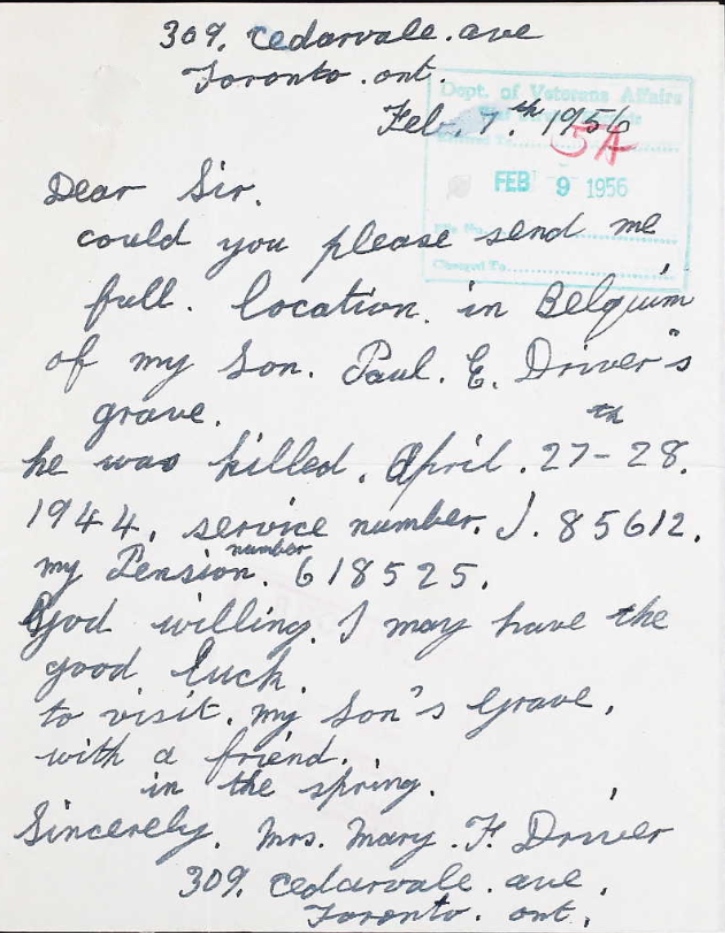 309. Cedarvale. ave
Toronto. ont.
Feb. 7.th 1956
Dept. of Veterans Affairs
5A
FEB 9 1956
File No.
Charged To
Dear Sir.
could you please send me
full. location. in Belguim
of my son. Paul. E. Driver's
grave.
he was killed. April. 27-28.th
1944. service number. J. 85612.
my Pension. number 618525.
God willing. I may have the
good luck.
to visit. my son's Grave.
with a friend.
in the spring.
Sincerely. Mrs. Mary. F. Driver
309. Cedarvale. ave.
Toronto. ont.